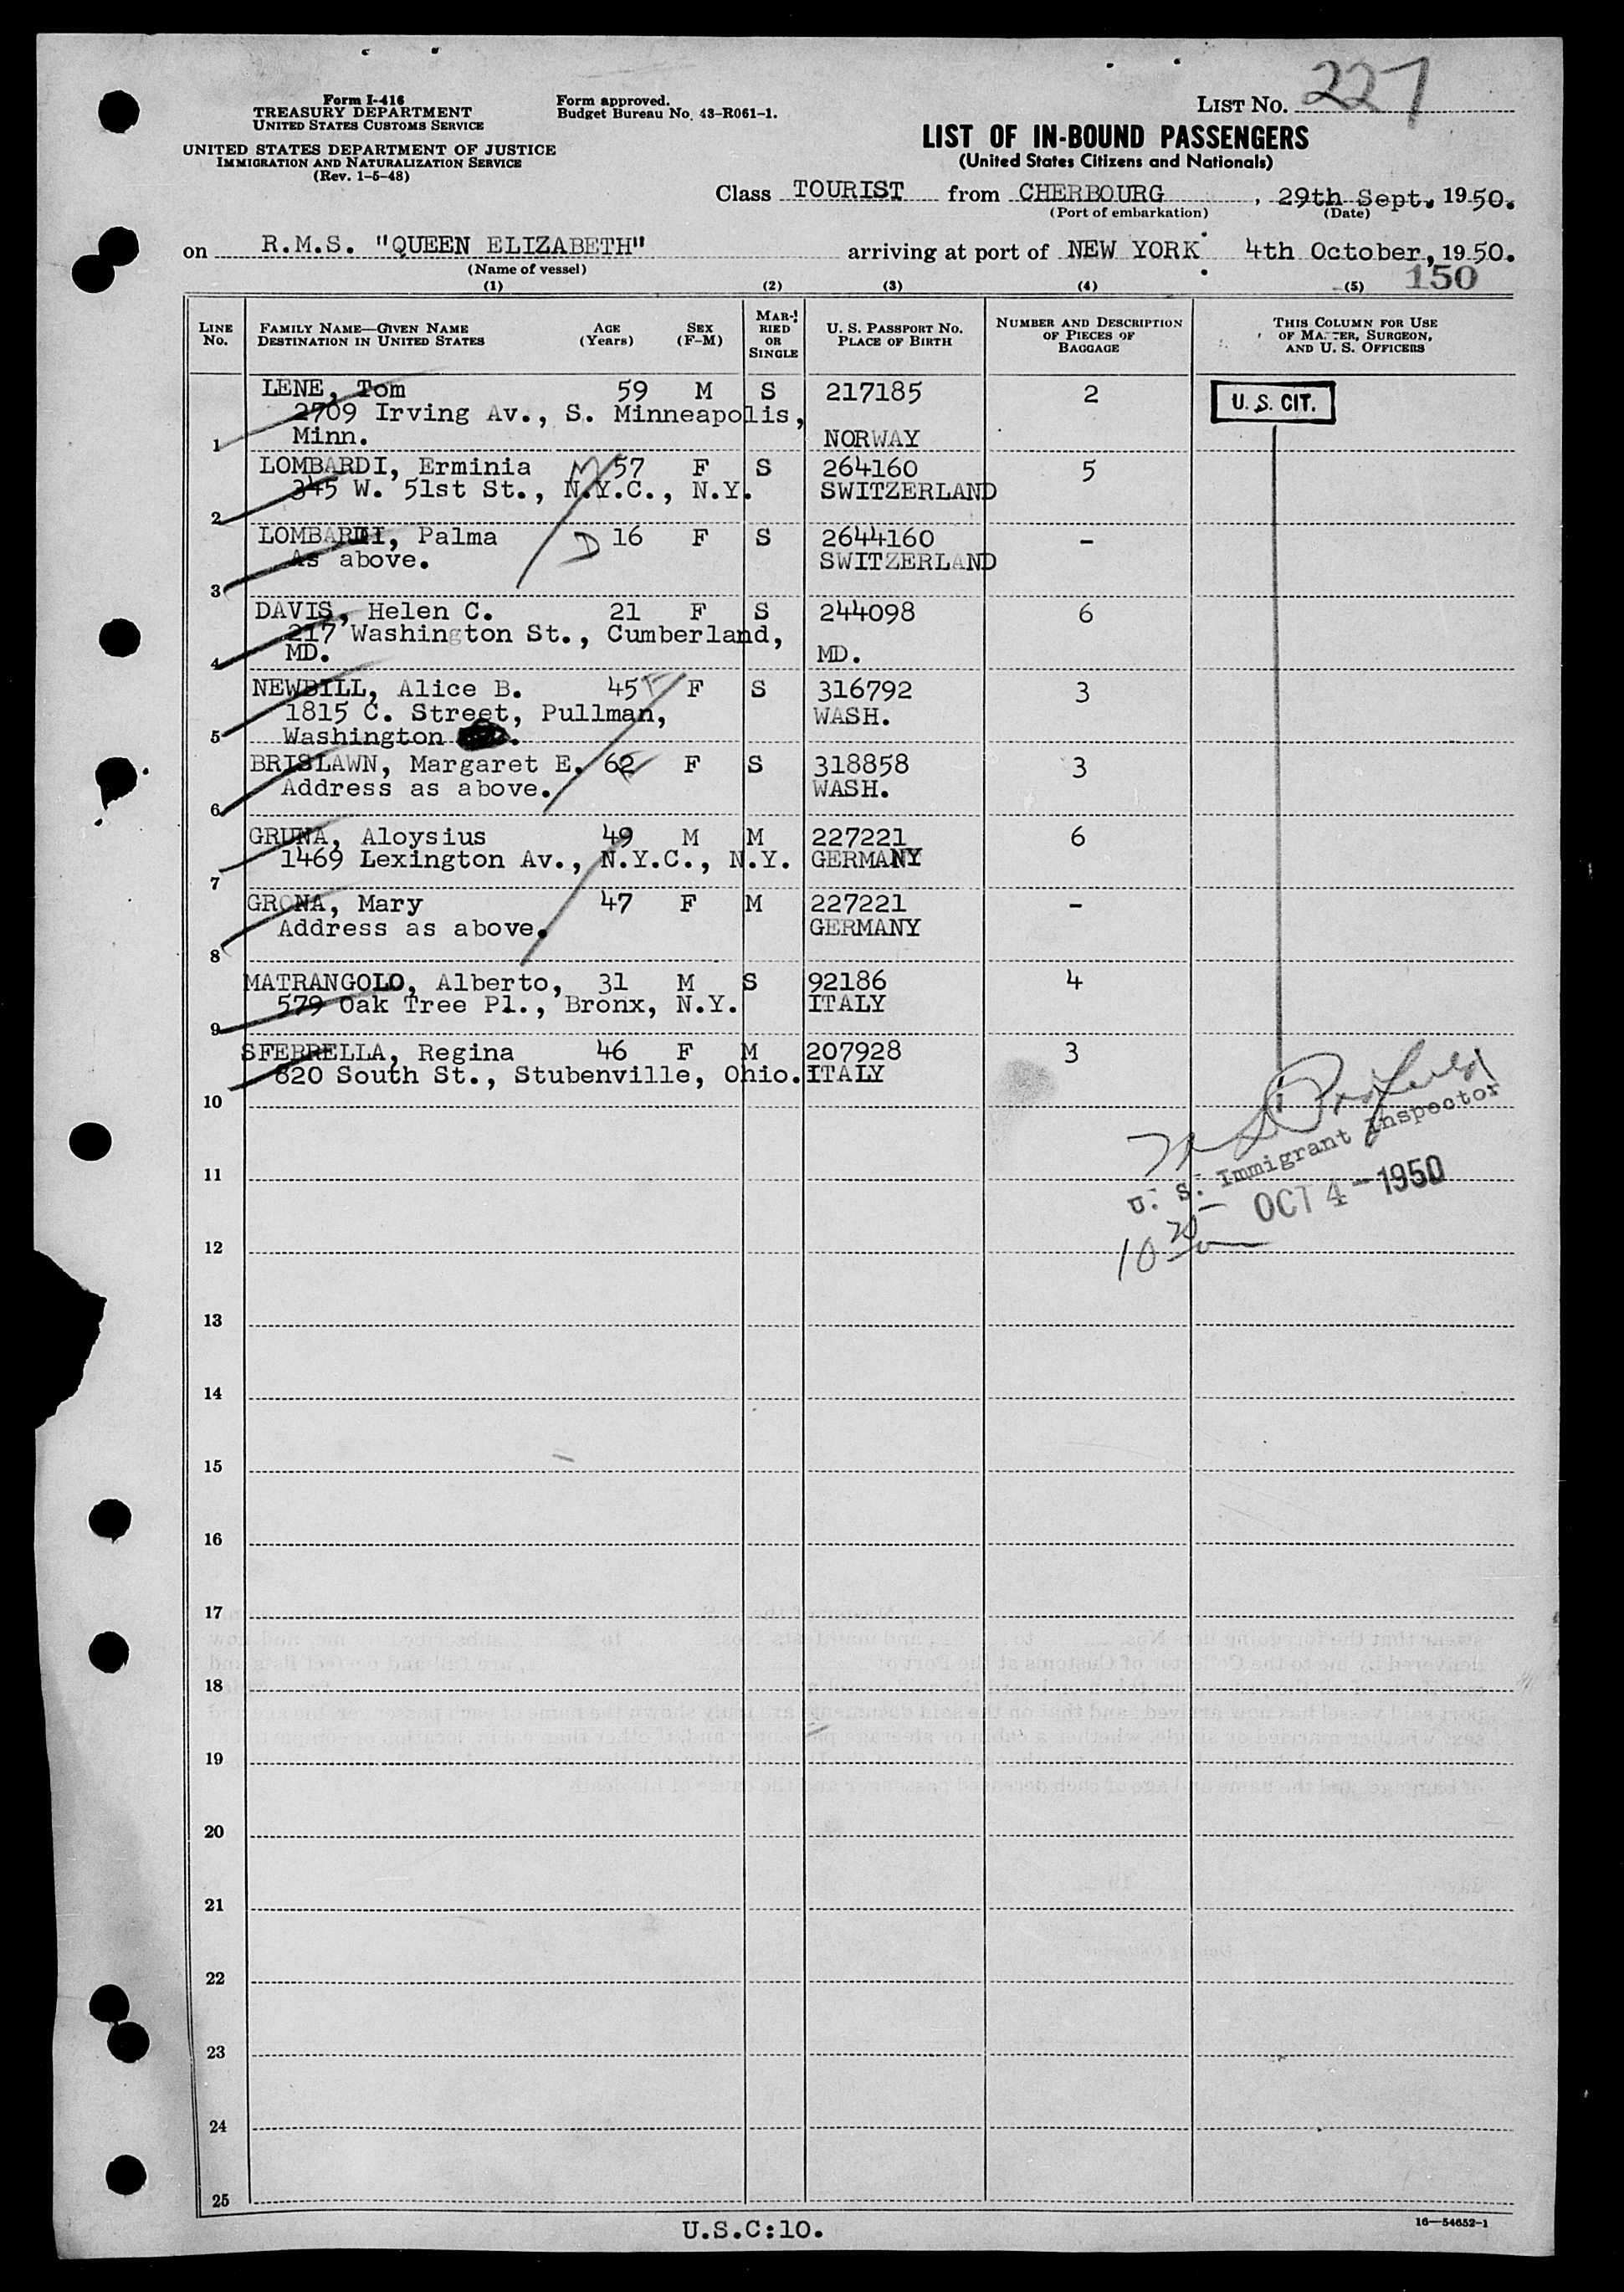 Form I-416
TREASURY DEPARTMENT
UNITED STATES CUSTOMS SERVICE
UNITED STATES DEPARTMENT OF JUSTICE
IMMIGRATION AND NATURALIZATION SERVICE
(Rev. 1-5-48)
Form approved.
Budget Bureau No. 43-R061-1.
LIST NO. 227
LIST OF IN-BOUND PASSENGERS
(United States Citizens and Nationals)
Class TOURIST from CHERBOURG, 29th Sept. 1950.
(Port of embarkation) (Date)
on R.M.S. "QUEEN ELIZABETH" arriving at port of NEW YORK 4th October, 1950.
(Name of vessel)
150
(1) (2) (3) (4) (5)
LINE No. FAMILY NAME—GIVEN NAME DESTINATION IN UNITED STATES AGE (Years) SEX (F-M) MARRIED OR SINGLE U. S. PASSPORT NO. PLACE OF BIRTH NUMBER AND DESCRIPTION OF PIECES OF BAGGAGE THIS COLUMN FOR USE OF MASTER, SURGEON, AND U. S. OFFICERS
LENE, Tom 59 M S 217185 2 U. S. CIT.
2709 Irving Av., S. Minneapolis,
1 Minn. NORWAY
LOMBARDI, Erminia M 57 F S 264160 5
345 W. 51st St., N.Y.C., N.Y. SWITZERLAND
2
LOMBARDI, Palma D 16 F S 2644160 -
As above. SWITZERLAND
3
DAVIS, Helen C. 21 F S 244098 6
217 Washington St., Cumberland,
4 MD. MD.
NEWBILL, Alice B. 45 F S 316792 3
1815 C. Street, Pullman, WASH.
5 Washington .
BRISLAWN, Margaret E. 62 F S 318858 3
Address as above. WASH.
6
GRUNA, Aloysius 49 M M 227221 6
1469 Lexington Av., N.Y.C., N.Y. GERMANY
7
GRONA, Mary 47 F M 227221 -
Address as above. GERMANY
8
MATRANGOLO, Alberto, 31 M S 92186 4
579 Oak Tree Pl., Bronx, N.Y. ITALY
9
SFERRELLA, Regina 46 F M 207928 3
820 South St., Stubenville, Ohio. ITALY
10
U. S. Immigrant Inspector
11
OCT 4 - 1950
10 20
12
13
14
15
16
17
18
19
20
21
22
23
24
25
U.S.C:10.
16—54652-1